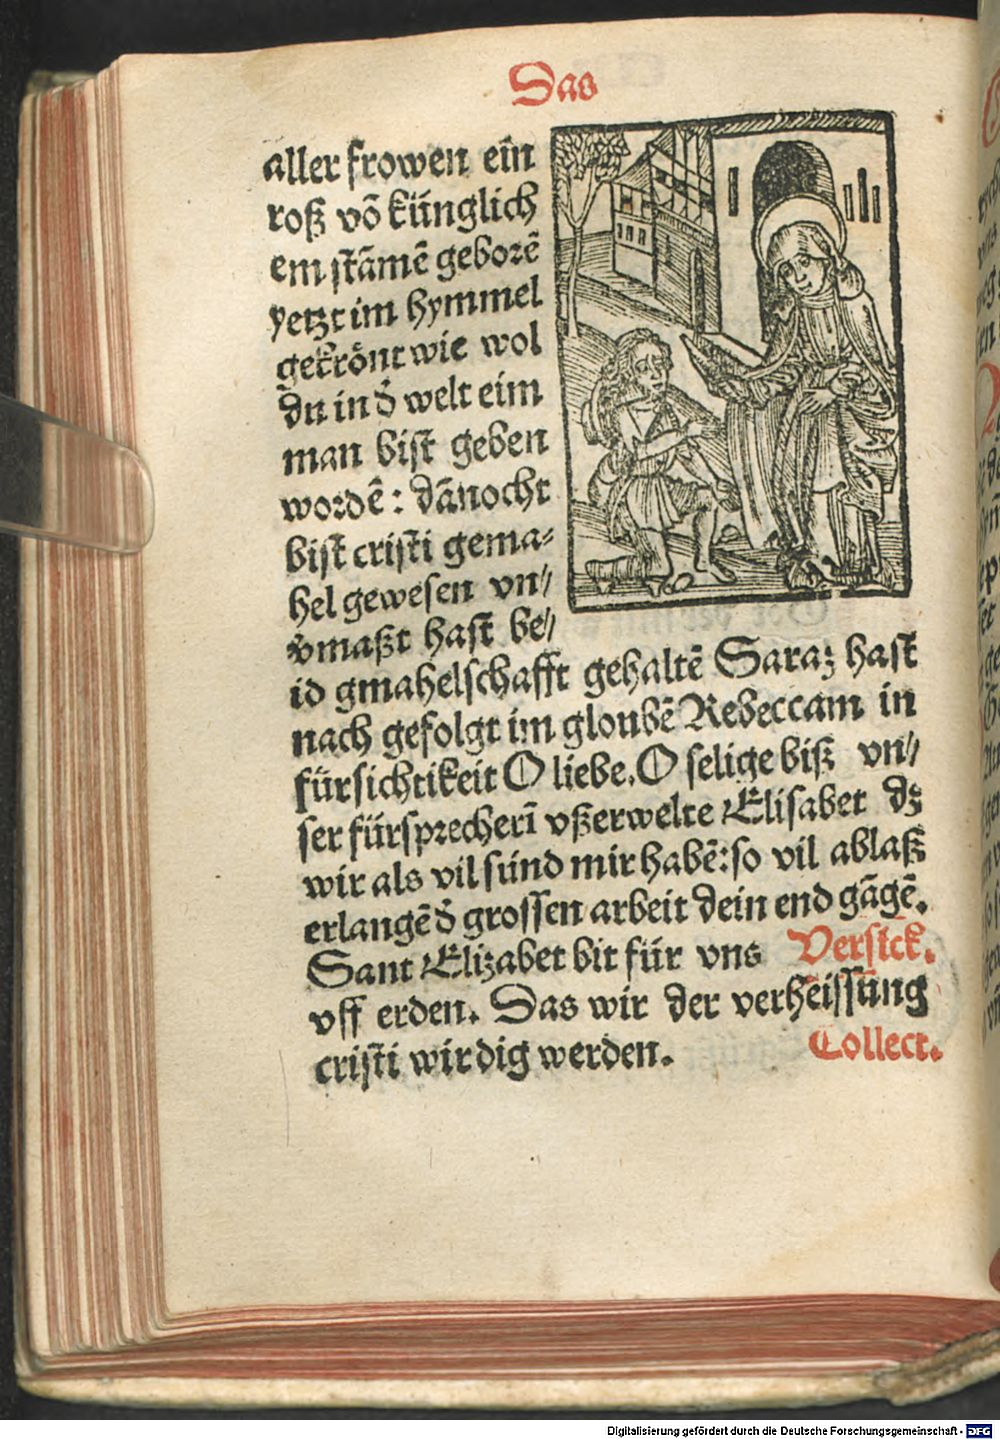 Das
aller frowen ein
roß võ küngklich
em stãmẽ geborẽ
yetzt im hymmel
gekrönt wie wol
du in d̕ welt eim
man bist geben
wordẽ: dãnocht
bist cristi gema⸗
hel gewesen vn⸗
v̕maßt hast be⸗
id gmahelschafft gehaltẽ Saraz hast
nach gefolgt im gloubẽ Rebeccam in
fürsichtikeit O liebe. O selige biß vn⸗
ser fürsprecherĩ vßerwelte Elisabet dz
wir als vil sünd mir habẽ: so vil ablaß
erlangẽ d̕ grossen arbeit dein end gãgẽ.
Sant Elizabet bit für vns Versick.
vff erden. Das wir der verheissung
cristi wirdig werden. Collect.
Digitalisierung gefördert durch die Deutsche Forschungsgemeinschaft - DFG